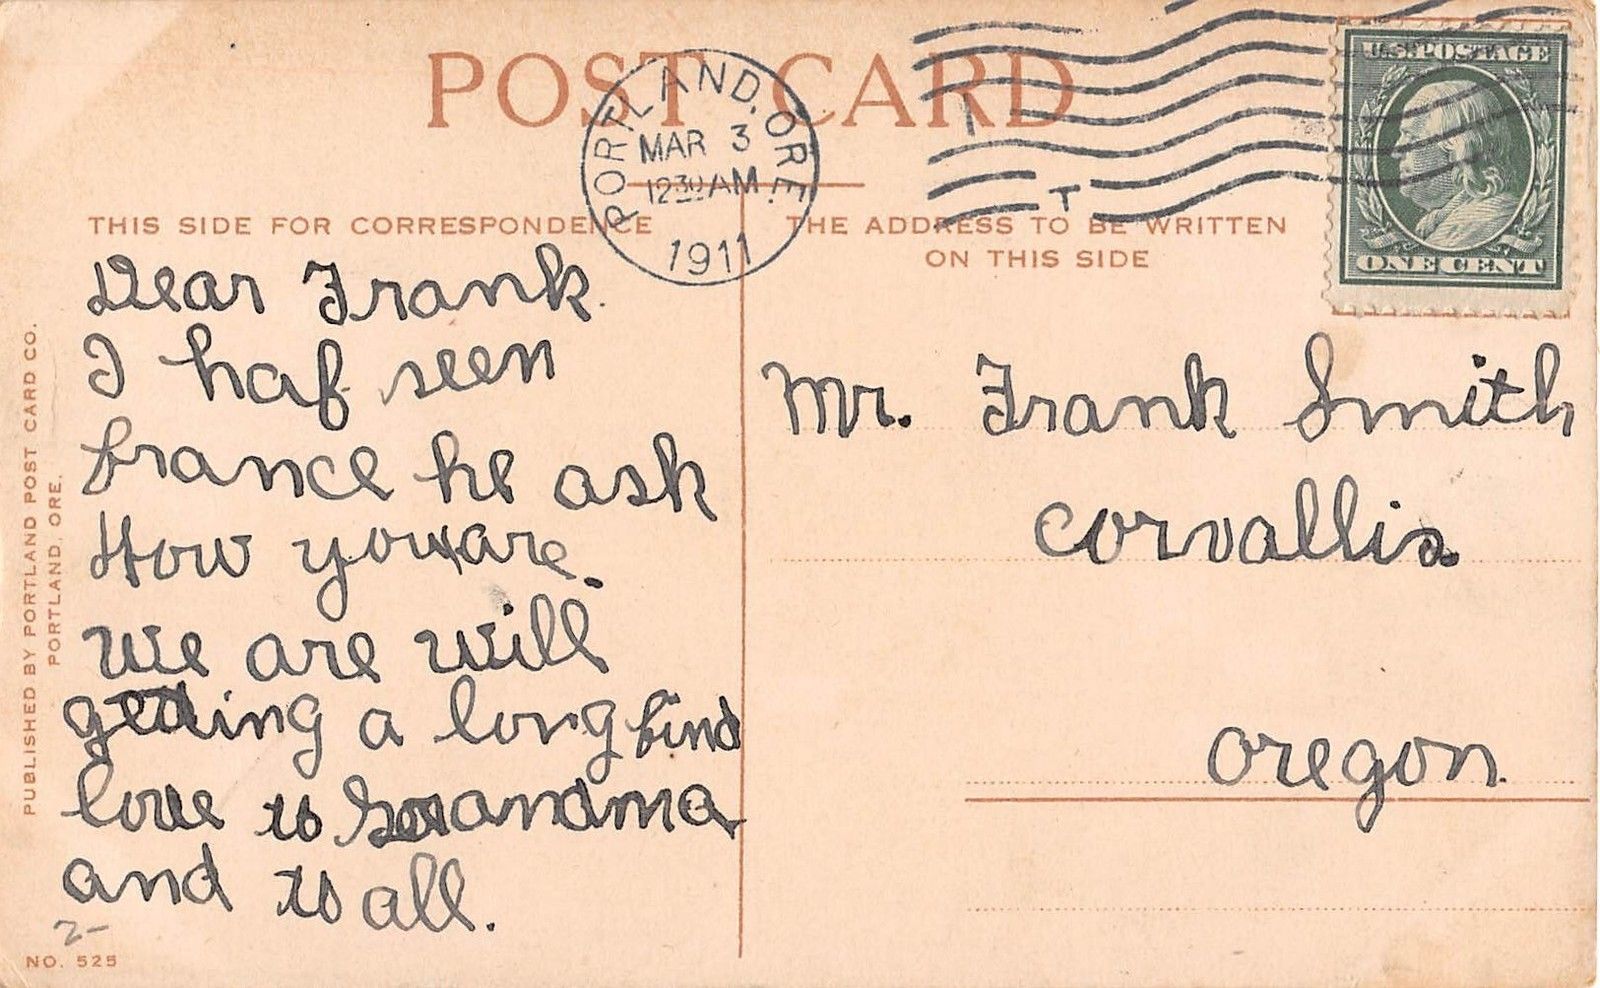 POST CARD
PORTLAND, ORE.
MAR 3
1230 AM
1911
T
U.S. POSTAGE
ONE CENT
THIS SIDE FOR CORRESPONDENCE
THE ADDRESS TO BE WRITTEN
ON THIS SIDE
Dear Frank.
I haf seen
france he ask
How you are.
We are will
getting a long find
love to Grandma
and to all.
Mr. Frank Smith
Corvallis.
Oregon.
PUBLISHED BY PORTLAND POST CARD CO.
PORTLAND, ORE.
2-
NO. 525